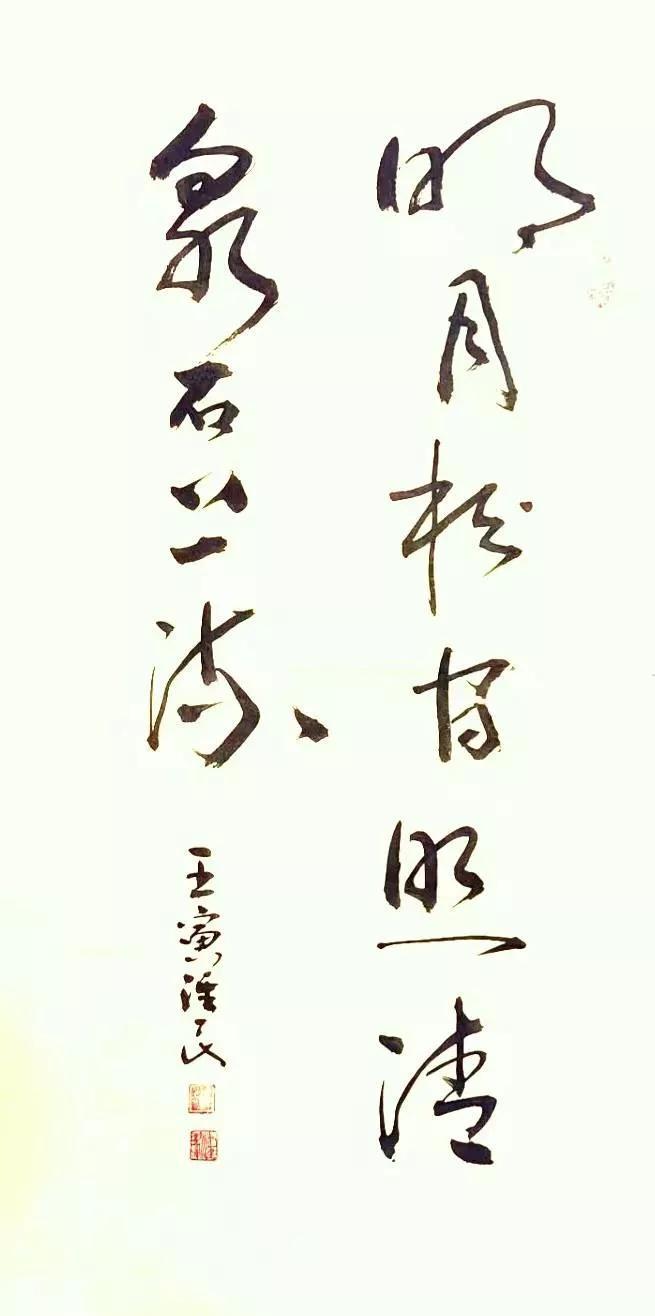 明月松間照清
泉石上流
壬寅